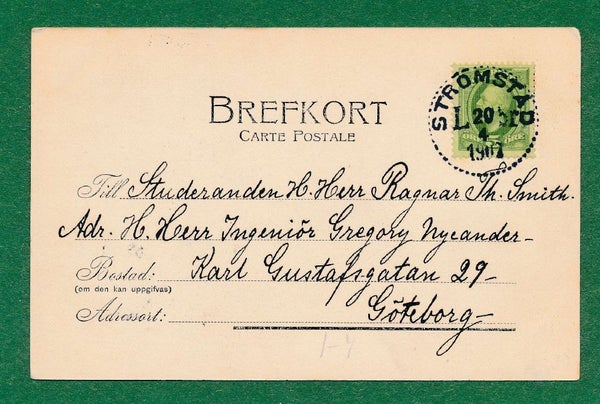 BREFKORT
CARTE POSTALE
STRÖMSTAD
20
4
1907
Till Studeranden H. Herr Ragnar Th. Smith.
Adr. H. Herr Ingeniör Gregory Nycander-
Bostad: Karl Gustafsgatan 29-
(om den kan uppgifvas)
Göteborg-
Adressort:
1-4